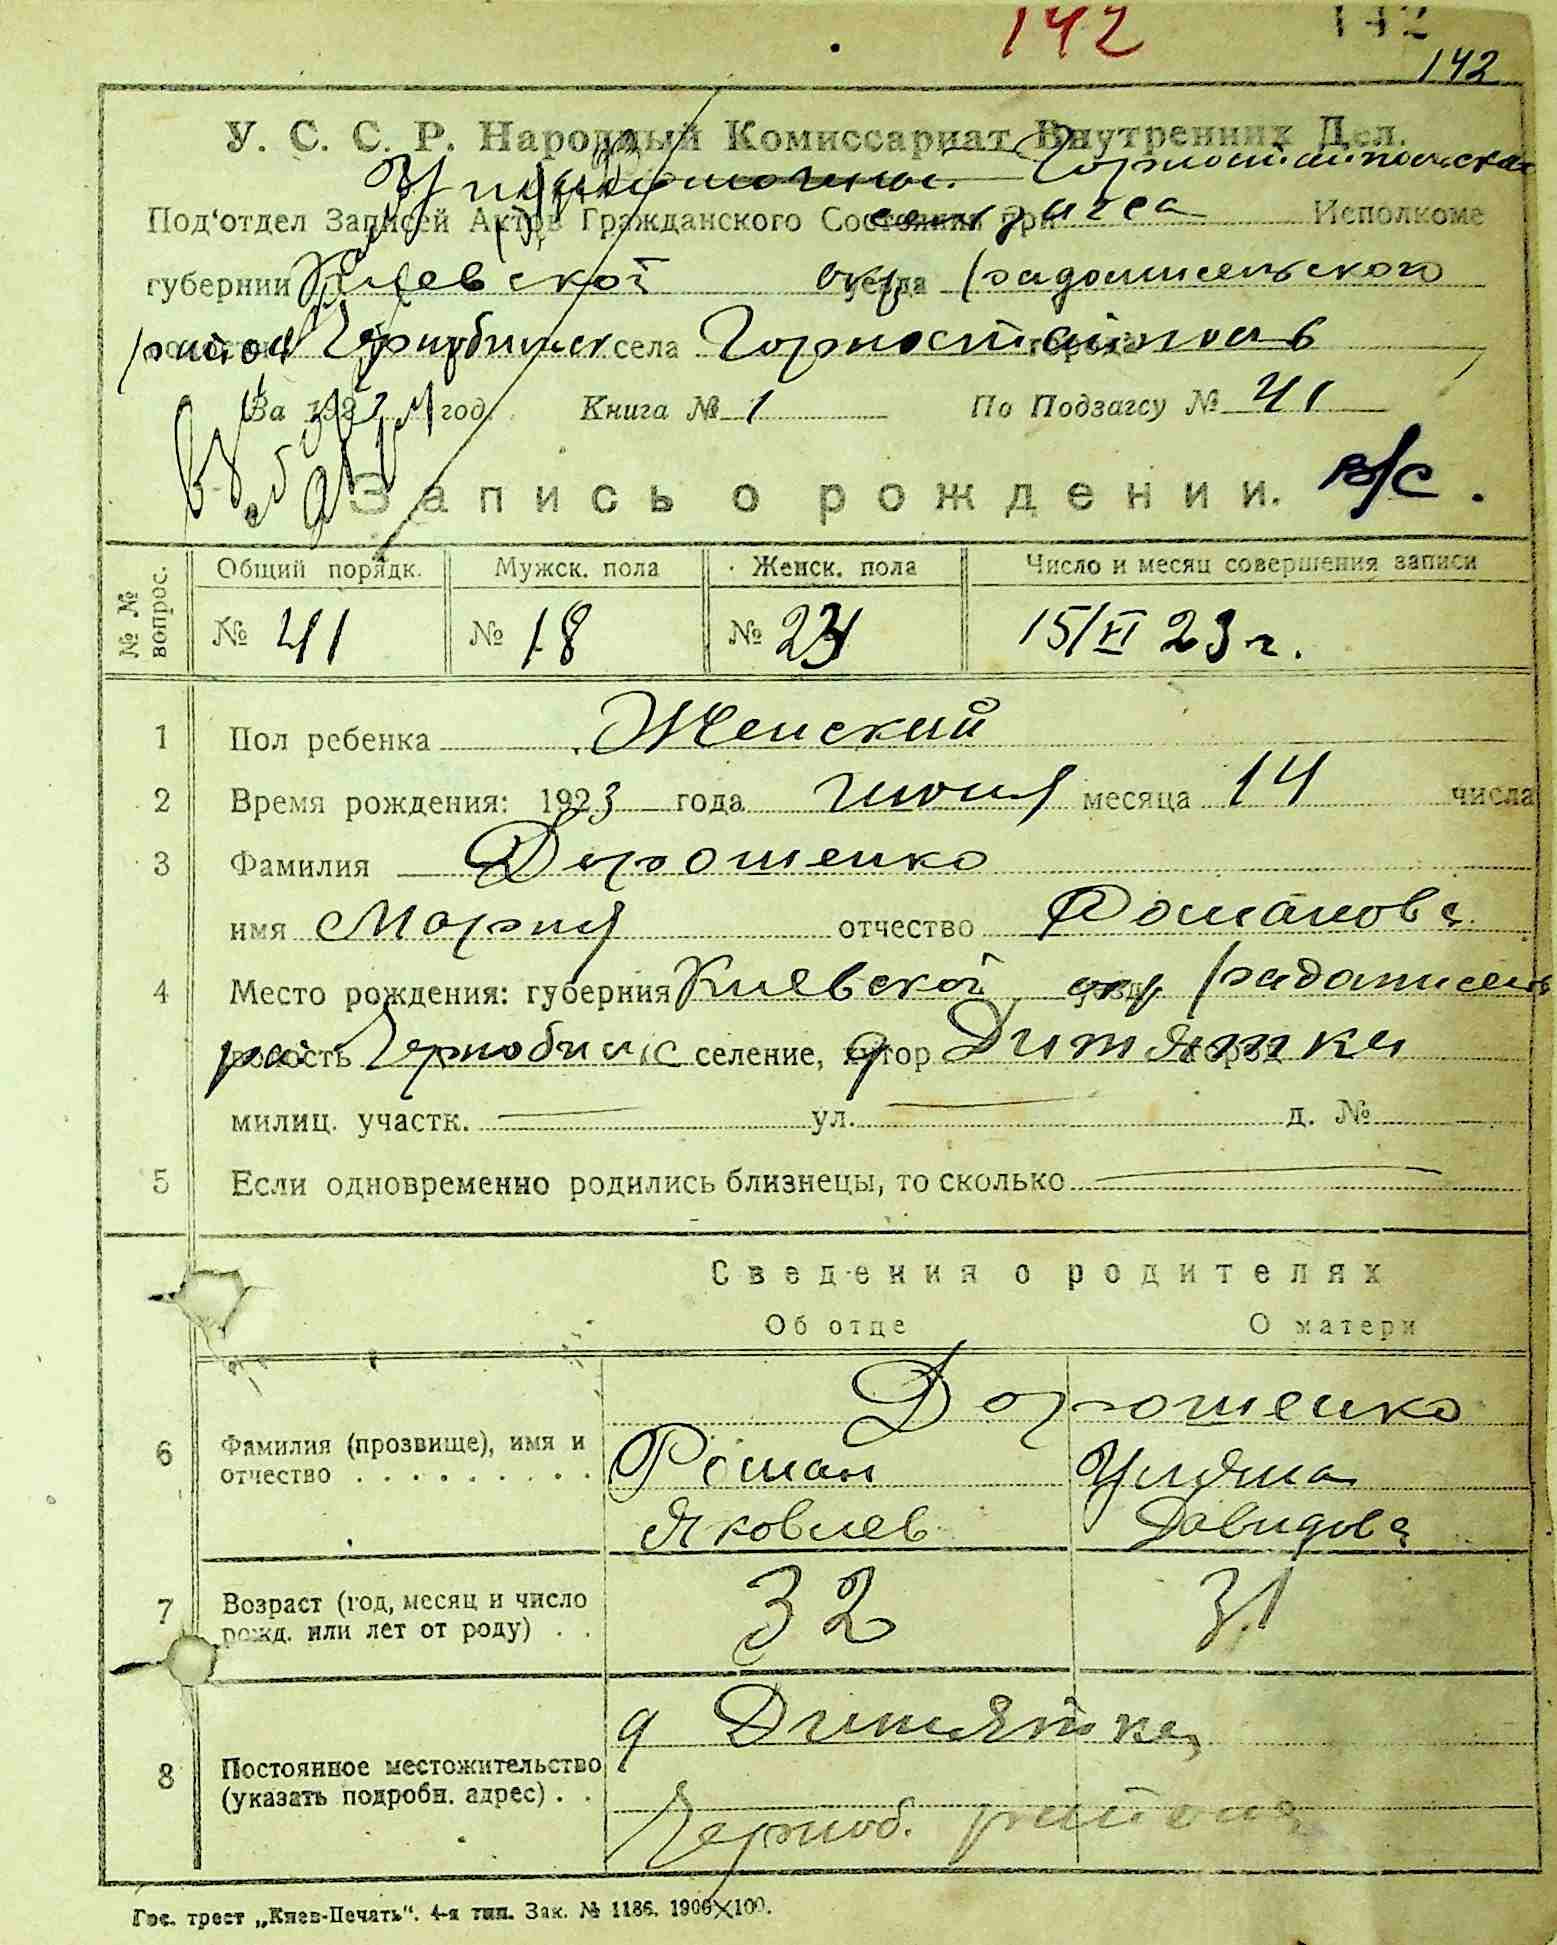 142 142
142
У. С. С. Р. Народный Комиссариат Внутренних Дел.
Горностайпольская
Под'отдел Записей Актов Гражданского Состояния при сельзагса Исполкоме
губернии Киевской окр уезда Радомисельского
район Чернобильск села Горностайполь
За 1923 год. Книга № 1 По Подзагсу № 41
Запись о рождении. в/с.
№ № вопрос. Общий порядк. Мужск. пола Женск. пола Число и месяц совершения записи
№ 41 № 18 № 23 15/VI 23 г.
1 Пол ребенка Женский
2 Время рождения: 1923 года июня месяца 14 числа
3 Фамилия Дорошенко
имя Мария отчество Романова
4 Место рождения: губерния Киевской окр Радомисель
рай волость Чернобильс селение, хутор д Дитятки
милиц. участк. — ул. — д. №
5 Если одновременно родились близнецы, то сколько —
Сведения о родителях
Об отце О матери
Дорошенко
6 Фамилия (прозвище), имя и Роман Ульяна
отчество . . . . . . . . . . Яковлев Давидова
7 Возраст (год, месяц и число 32 31
рожд. или лет от роду) . .
д Дитятки
8 Постоянное местожительство
(указать подробн. адрес) . . Черноб. района
Гос. трест „Киев-Печать“. 4-я тип. Зак. № 1186. 1900×100.